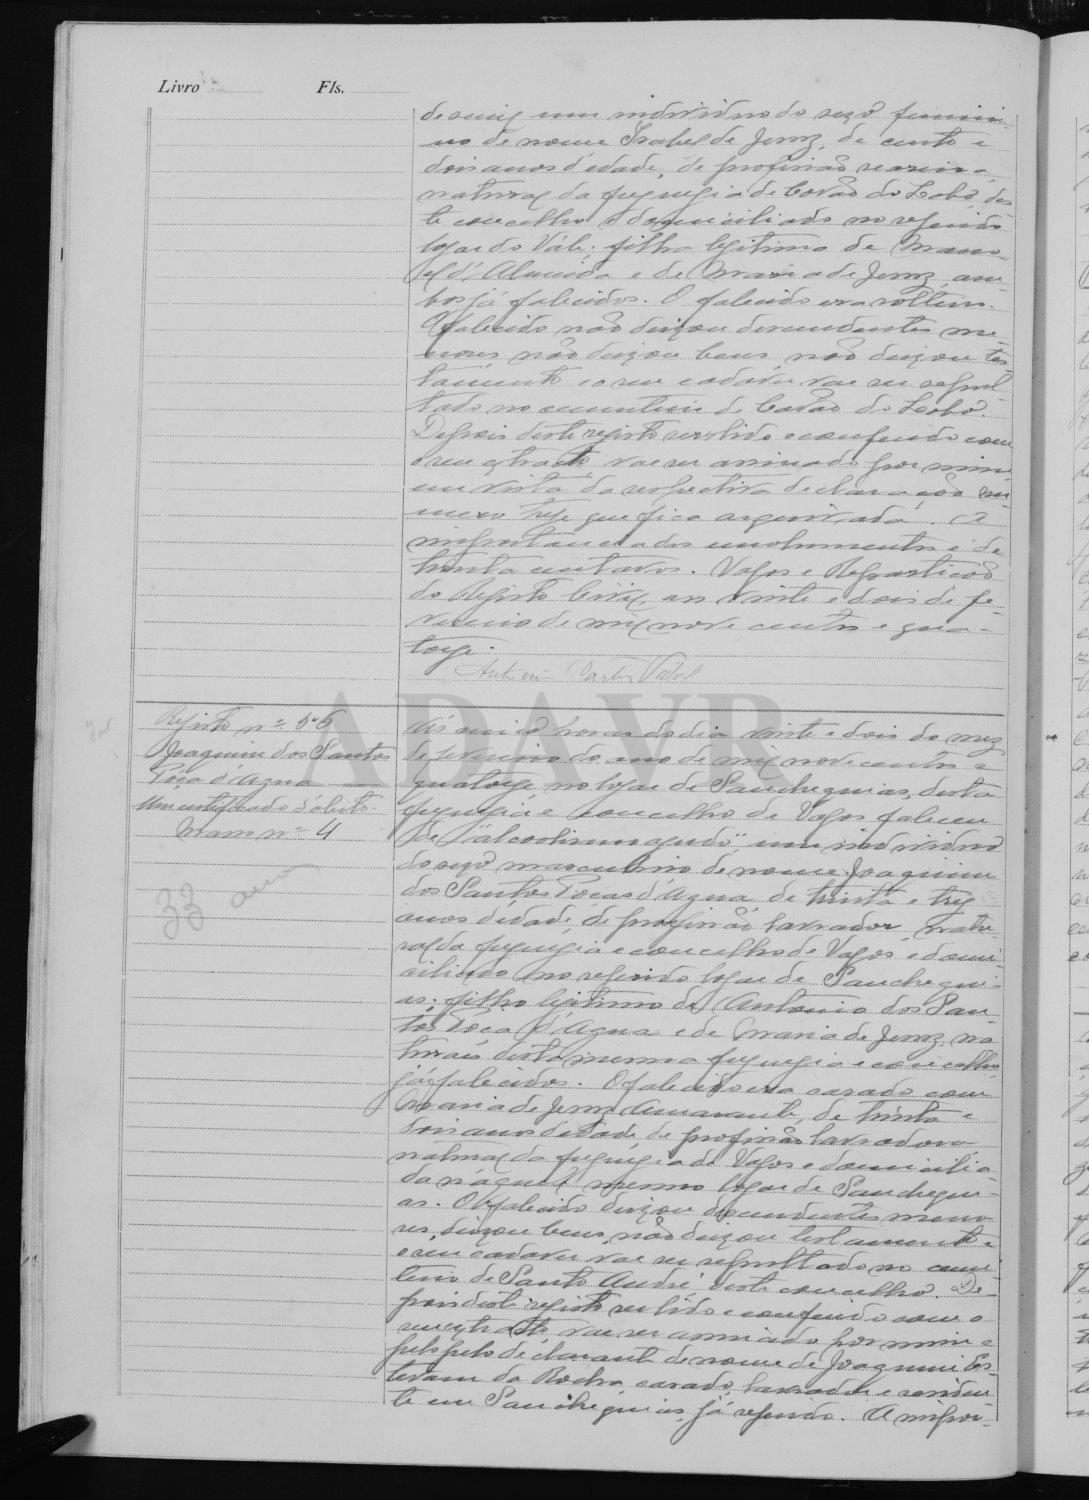 Livro Fls.
um individuo do sexo femini-
no de nome Isabel de Jesus, de cento e
dois anos d'edade, de profissão
natural da freguesia de Covão do Lobo, des-
te concelho e domiciliado no referido
logar do Vále: filha legitima de Mano-
el d'Almeida e de Maria de Jesus, am-
bos já falecidos. O falecido era solteiro.
O falecido não deixou descendentes me-
nores, não deixou bens, não deixou tes-
tamento e o seu cadaver vae ser sepul-
tado no cemiterio de Covão do Lobo.
Depois deste registo ser lido e conferido com
o seu extracto, vae ser assinado por mim
em vista da respectiva declaração nu-
mero treze que fica arquivada. A
importancia dos emolumentos é de
trinta centavos. Vagos e Repartição
do Registo Civil, aos vinte e dois de fe-
vereiro de mil nove centos e qua-
torze.
ADAVR
Registo nº 56
Joaquim dos Santos
Poça d'Agua
Um certificado d'óbito.
Maço nº 4
33 anos
horas do dia vinte e dois do mez
de fevereiro do ano de mil nove centos e
quatorze, no logar de Sanchequias, desta
freguesia e concelho de Vagos faleceu
de "alcoolismo agudo", um individuo
do sexo masculino de nome Joaquim
dos Santos Poças d'Agua de trinta e trez
anos d'edade, de profissão lavrador, natu-
ral da freguesia e concelho de Vagos e domi-
ciliado no referido logar de Sanchequi-
as: filho legitimo de Antonio dos San-
tos Poça d'Agua e de Maria de Jesus, na-
turais desta mesma freguesia e concelho
já falecidos. O falecido era casado com
Maria de Jesus Amarante, de trinta e
dois anos d'edade, de profissão lavradora
natural da freguesia de Vagos e domicilia-
da náquele mesmo logar de Sanchequi-
as. O falecido deixou descendentes meno-
res, deixou bens, não deixou testamento e
o seu cadaver vae ser sepultado no cemi-
terio de Santo André, deste concelho. De-
pois deste registo ser lido e conferido com o
seu extracto, vae ser assinado por mim e
pelo declarante de nome de Joaquim Es-
tevam da Rocha, casado, lavrador e residen-
te em Sanchequias, já referido. A impor-